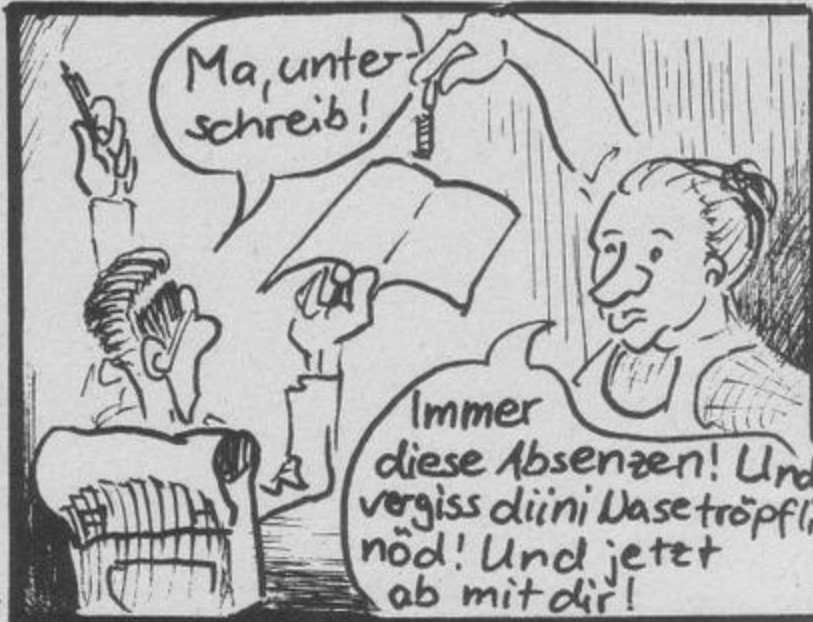 Ma, unter-
schreib!
Immer
diese Absenzen! Und
vergiss diini Nasetröpfli
nöd! Und jetzt
ab mit dir!